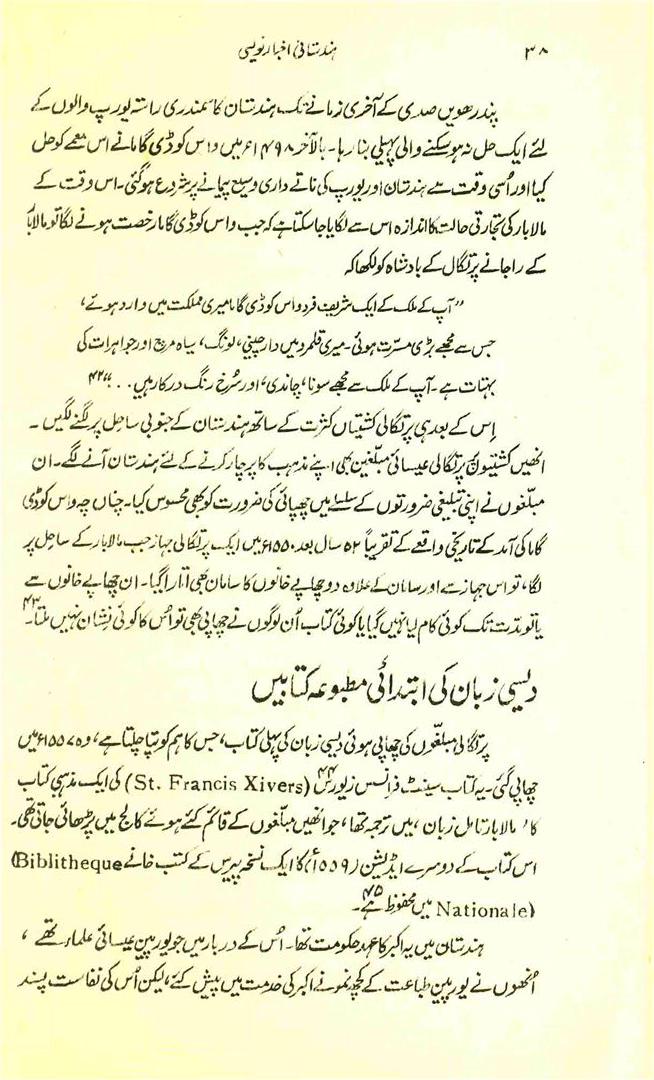 ۳۸ ہندستانی اخبار نویسی
پندرھویں صدی کے آخری زمانے تک ہندستان کا سمندری راستہ یورپ والوں کے
لئے ایک حل نہ ہو سکنے والی پہیلی بنا رہا۔ بالآخر ۱۴۹۸ء میں واس کوڈی گاما نے اس معمے کو حل
کیا اور اُسی وقت سے ہندستان اور یورپ کی ناتے داری وسیع پیمانے پر شروع ہو گئی۔ اس وقت کے
مالابار کی تجارتی حالت کا اندازہ اس سے لگایا جا سکتا ہے کہ جب واس کوڈی گاما رخصت ہونے لگا تو مالابار
کے راجا نے پرتگال کے بادشاہ کو لکھا کہ
”آپ کے ملک کے ایک شریف فرد واس کوڈی گاما میری مملکت میں وارد ہوئے،
جس سے مجھے بڑی مسرّت ہوئی۔ میری قلمرو میں دار چینی، لونگ، سیاہ مرچ اور جواہرات کی
بہتات ہے۔ آپ کے ملک سے مجھے سونا، چاندی، اور سُرخ رنگ درکار ہیں ...“۴۲
اِس کے بعد ہی پرتگالی کشتیاں کثرت کے ساتھ ہندستان کے جنوبی ساحل پر لگنے لگیں۔
انھیں کشتیوں پر پرتگالی عیسائی مبلّغین بھی اپنے مذہب کا پرچار کرنے کے لئے ہندستان آنے لگے۔ ان
مبلّغوں نے اپنی تبلیغی ضرورتوں کے سلسلے میں چھپائی کی ضرورت کو بھی محسوس کیا۔ چناں چہ واس کوڈی
گاما کی آمد کے تاریخی واقعے کے تقریباً ۵۲ سال بعد ۱۵۵۰ء میں ایک پرتگالی جہاز جب مالابار کے ساحل پر
لگا، تو اس جہاز سے اور سامان کے علاوہ دو چھاپے خانوں کا سامان بھی اُتارا گیا۔ ان چھاپے خانوں سے
یا تو مدّت تک کوئی کام لیا نہیں گیا یا کوئی کتاب اُن لوگوں نے چھاپی بھی تو اُس کا کوئی نشان نہیں ملتا۔۴۳
دیسی زبان کی ابتدائی مطبوعہ کتابیں
پرتگالی مبلّغوں کی چھاپی ہوئی دیسی زبان کی پہلی کتاب، جس کا ہم کو پتا چلتا ہے، وہ ۱۵۵۷ء میں
چھاپی گئی۔ یہ کتاب سینٹ فرانسس زیورس۴۴ (St. Francis Xivers) کی ایک مذہبی کتاب
کا ’مالابار تامل زبان‘ میں ترجمہ تھا، جو انھیں مبلّغوں کے قائم کئے ہوئے کالج میں پڑھائی جاتی تھی۔
اس کتاب کے دوسرے ایڈیشن (۱۵۵۹ء) کا ایک نسخہ پیرس کے کتب خانے (Biblitheque
Nationale) میں محفوظ ہے۔۴۵
ہندستان میں یہ اکبر کا عہد حکومت تھا۔ اُس کے دربار میں جو یورپین عیسائی علماء تھے،
اُنھوں نے یورپین طباعت کے کچھ نمونے اکبر کی خدمت میں پیش کئے، لیکن اُس کی نفاست پسند